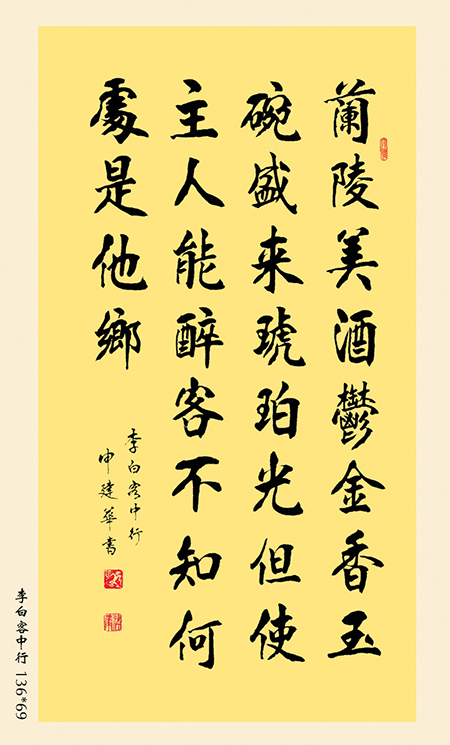 蘭陵美酒鬱金香玉
碗盛来琥珀光但使
主人能醉客不知何
處是他鄉
李白客中行
申建華書
李白客中行 136*69